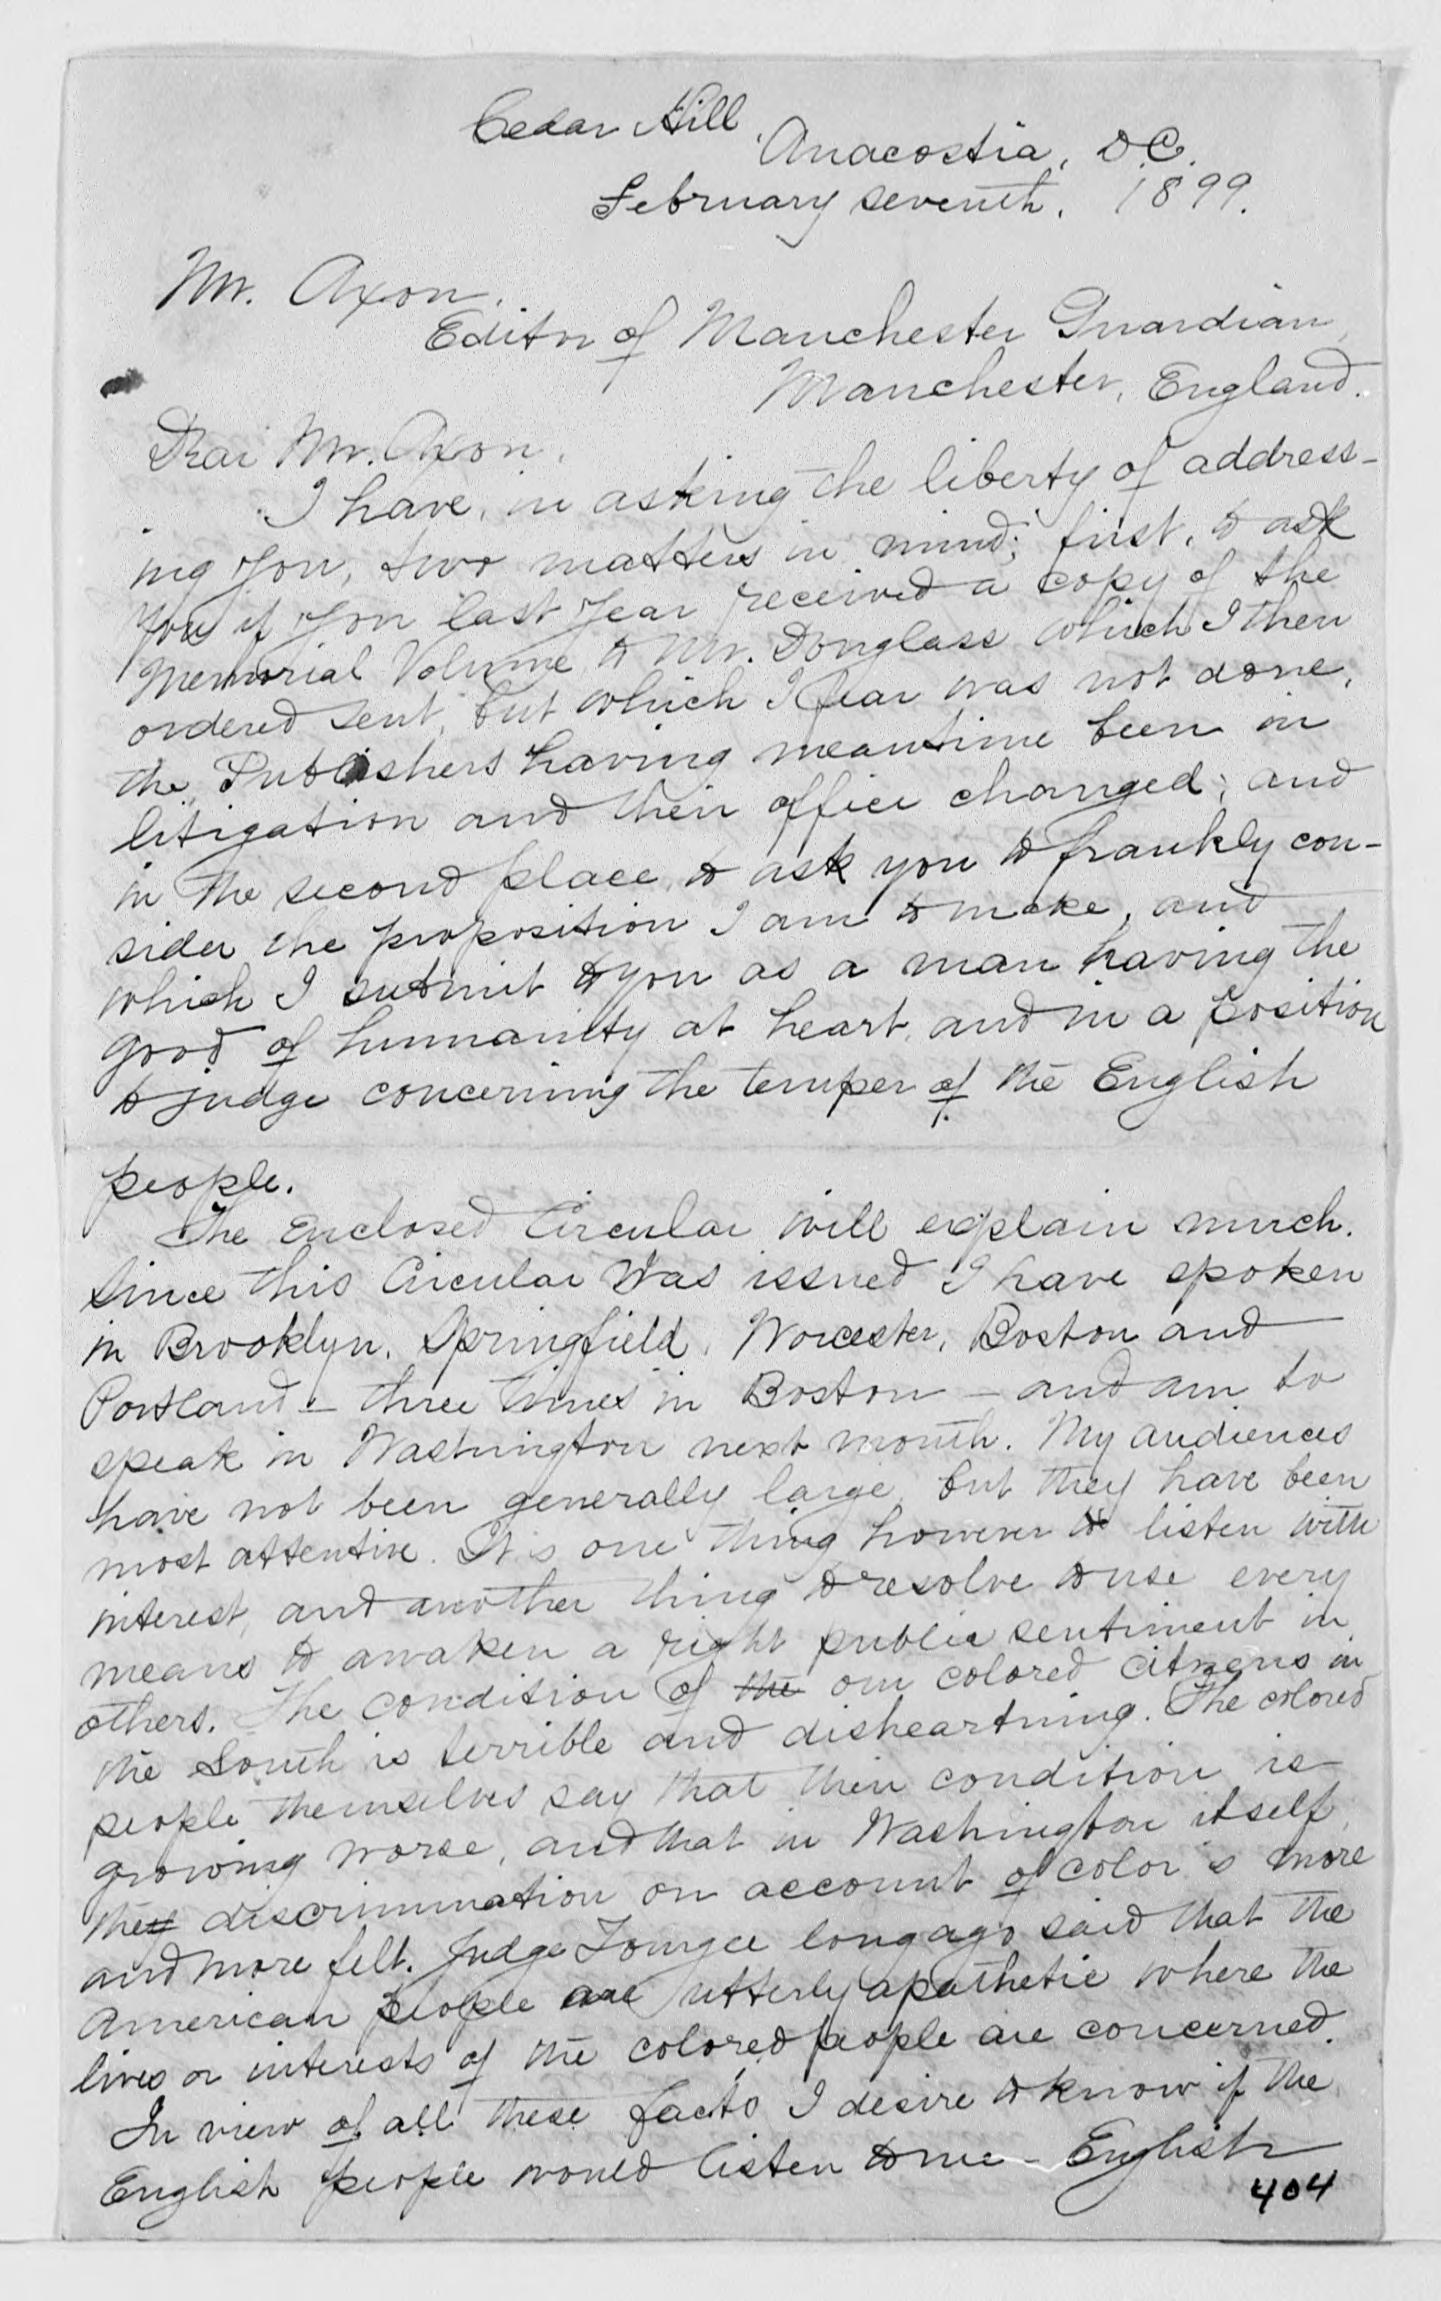 Cedar Hill,
Anacostia, D.C.
February seventh, 1899.
Mr. Axon,
Editor of Manchester Guardian,
Manchester, England.
Dear Mr. Axon,
I have, in asking the liberty of address-
ing you, two matters in mind; first, to ask
you if you last year received a copy of the
Memorial Volume to Mr. Douglass which I then
ordered sent, but which I fear was not done,
the Publishers having meantime been in
litigation and their office changed; and
in the second place, to ask you to frankly con-
sider the proposition I am to make, and
which I submit to you as a man having the
good of humanity at heart, and in a position
to judge concerning the temper of the English
people.
The enclosed Circular will explain much.
Since this Circular was issued I have spoken
in Brooklyn, Springfield, Worcester, Boston and
Portland – three times in Boston – and am to
speak in Washington next month. My audiences
have not been generally large, but they have been
most attentive. It is one thing however to listen with
interest, and another thing to resolve to use every
means to awaken a right public sentiment in
others. The condition of the our colored citizens in
the South is terrible and disheartning. The colored
people themselves say that their condition is
growing worse, and that in Washington itself,
they discrimination on account of color is more
and more felt. Judge Tourgee long ago said that the
American people are utterly apathetic where the
lives or interests of the colored people are concerned.
In view of all these facts I desire to know if the
English people would listen to me – English
404